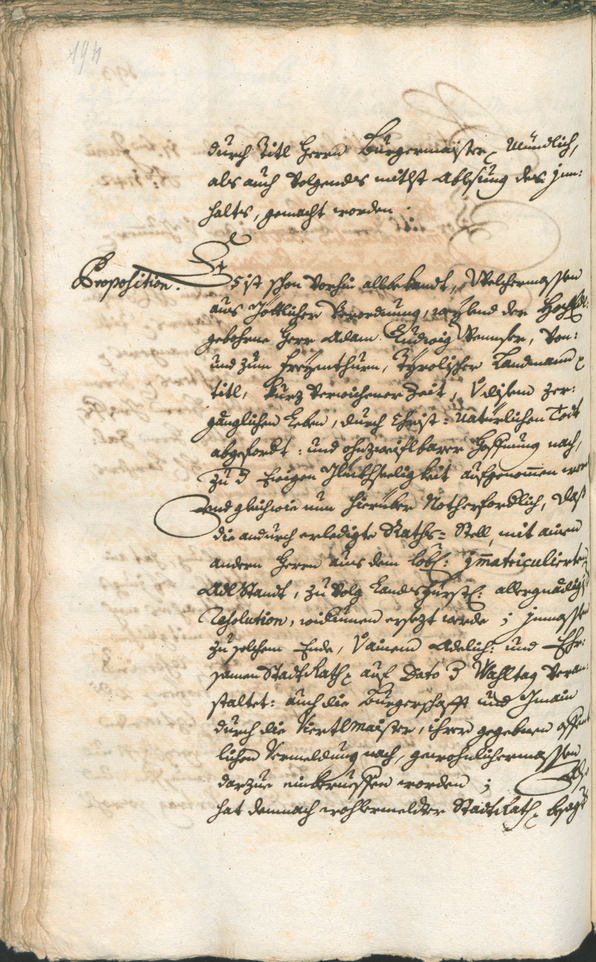 194
durch Titl Herrn Burgermaister Mündlich,
als auch volgendes mitlst Ablösung des Jnn-
halts, gemacht worden
Proposition. Es ist schon vorhin allbekandt, Welchermassen
aus Göttlicher Verordnung, weylend der Hoch
gebohrne Herr Adam Ludwig Wenser, von:
und zum Freyenthurn, Tyrolischer Landmann
titl, kurz verwichener Zeit, disem zer-
gänglichen Leben, durch Christ: Natürlichen Todt
abgefordt: und ohnzweiflbarer Hoffnung nach,
zu Ewigen Glückhseeligkeit aufgenommen wor
und gleichwie nun hierüber Notherfordlich, daß
die andurch erledigte Raths-Stell, mit ainen
andern Herrn aus dem Löbl: Jmmatriculierten
Adl Standt, zu Volg Landsfürstl: allergnädig
Resolution, widumen ersezt werde; Jnmassen
zu solchem Ende, Vainem Adelich: und Ehr-
samen Stadt Rath auf Dato Wahltag veran-
staltet: auch die Bürgerschafft und Gmain
durch die Viertlmaister, ihren gegebenen offent
lichen Vermeldung nach, gewohnlichermassen
darzue einberueffen worden; Als
hat demnach wohlermelter Stadt Rath besagt